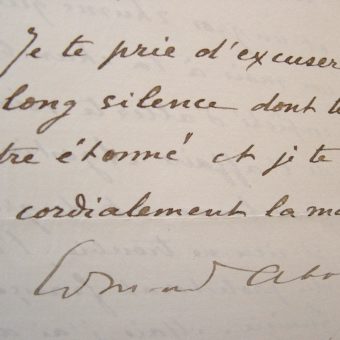 Je te prie d'excuser
long silence dont
tre étonné et je te
cordialement la
Edmond